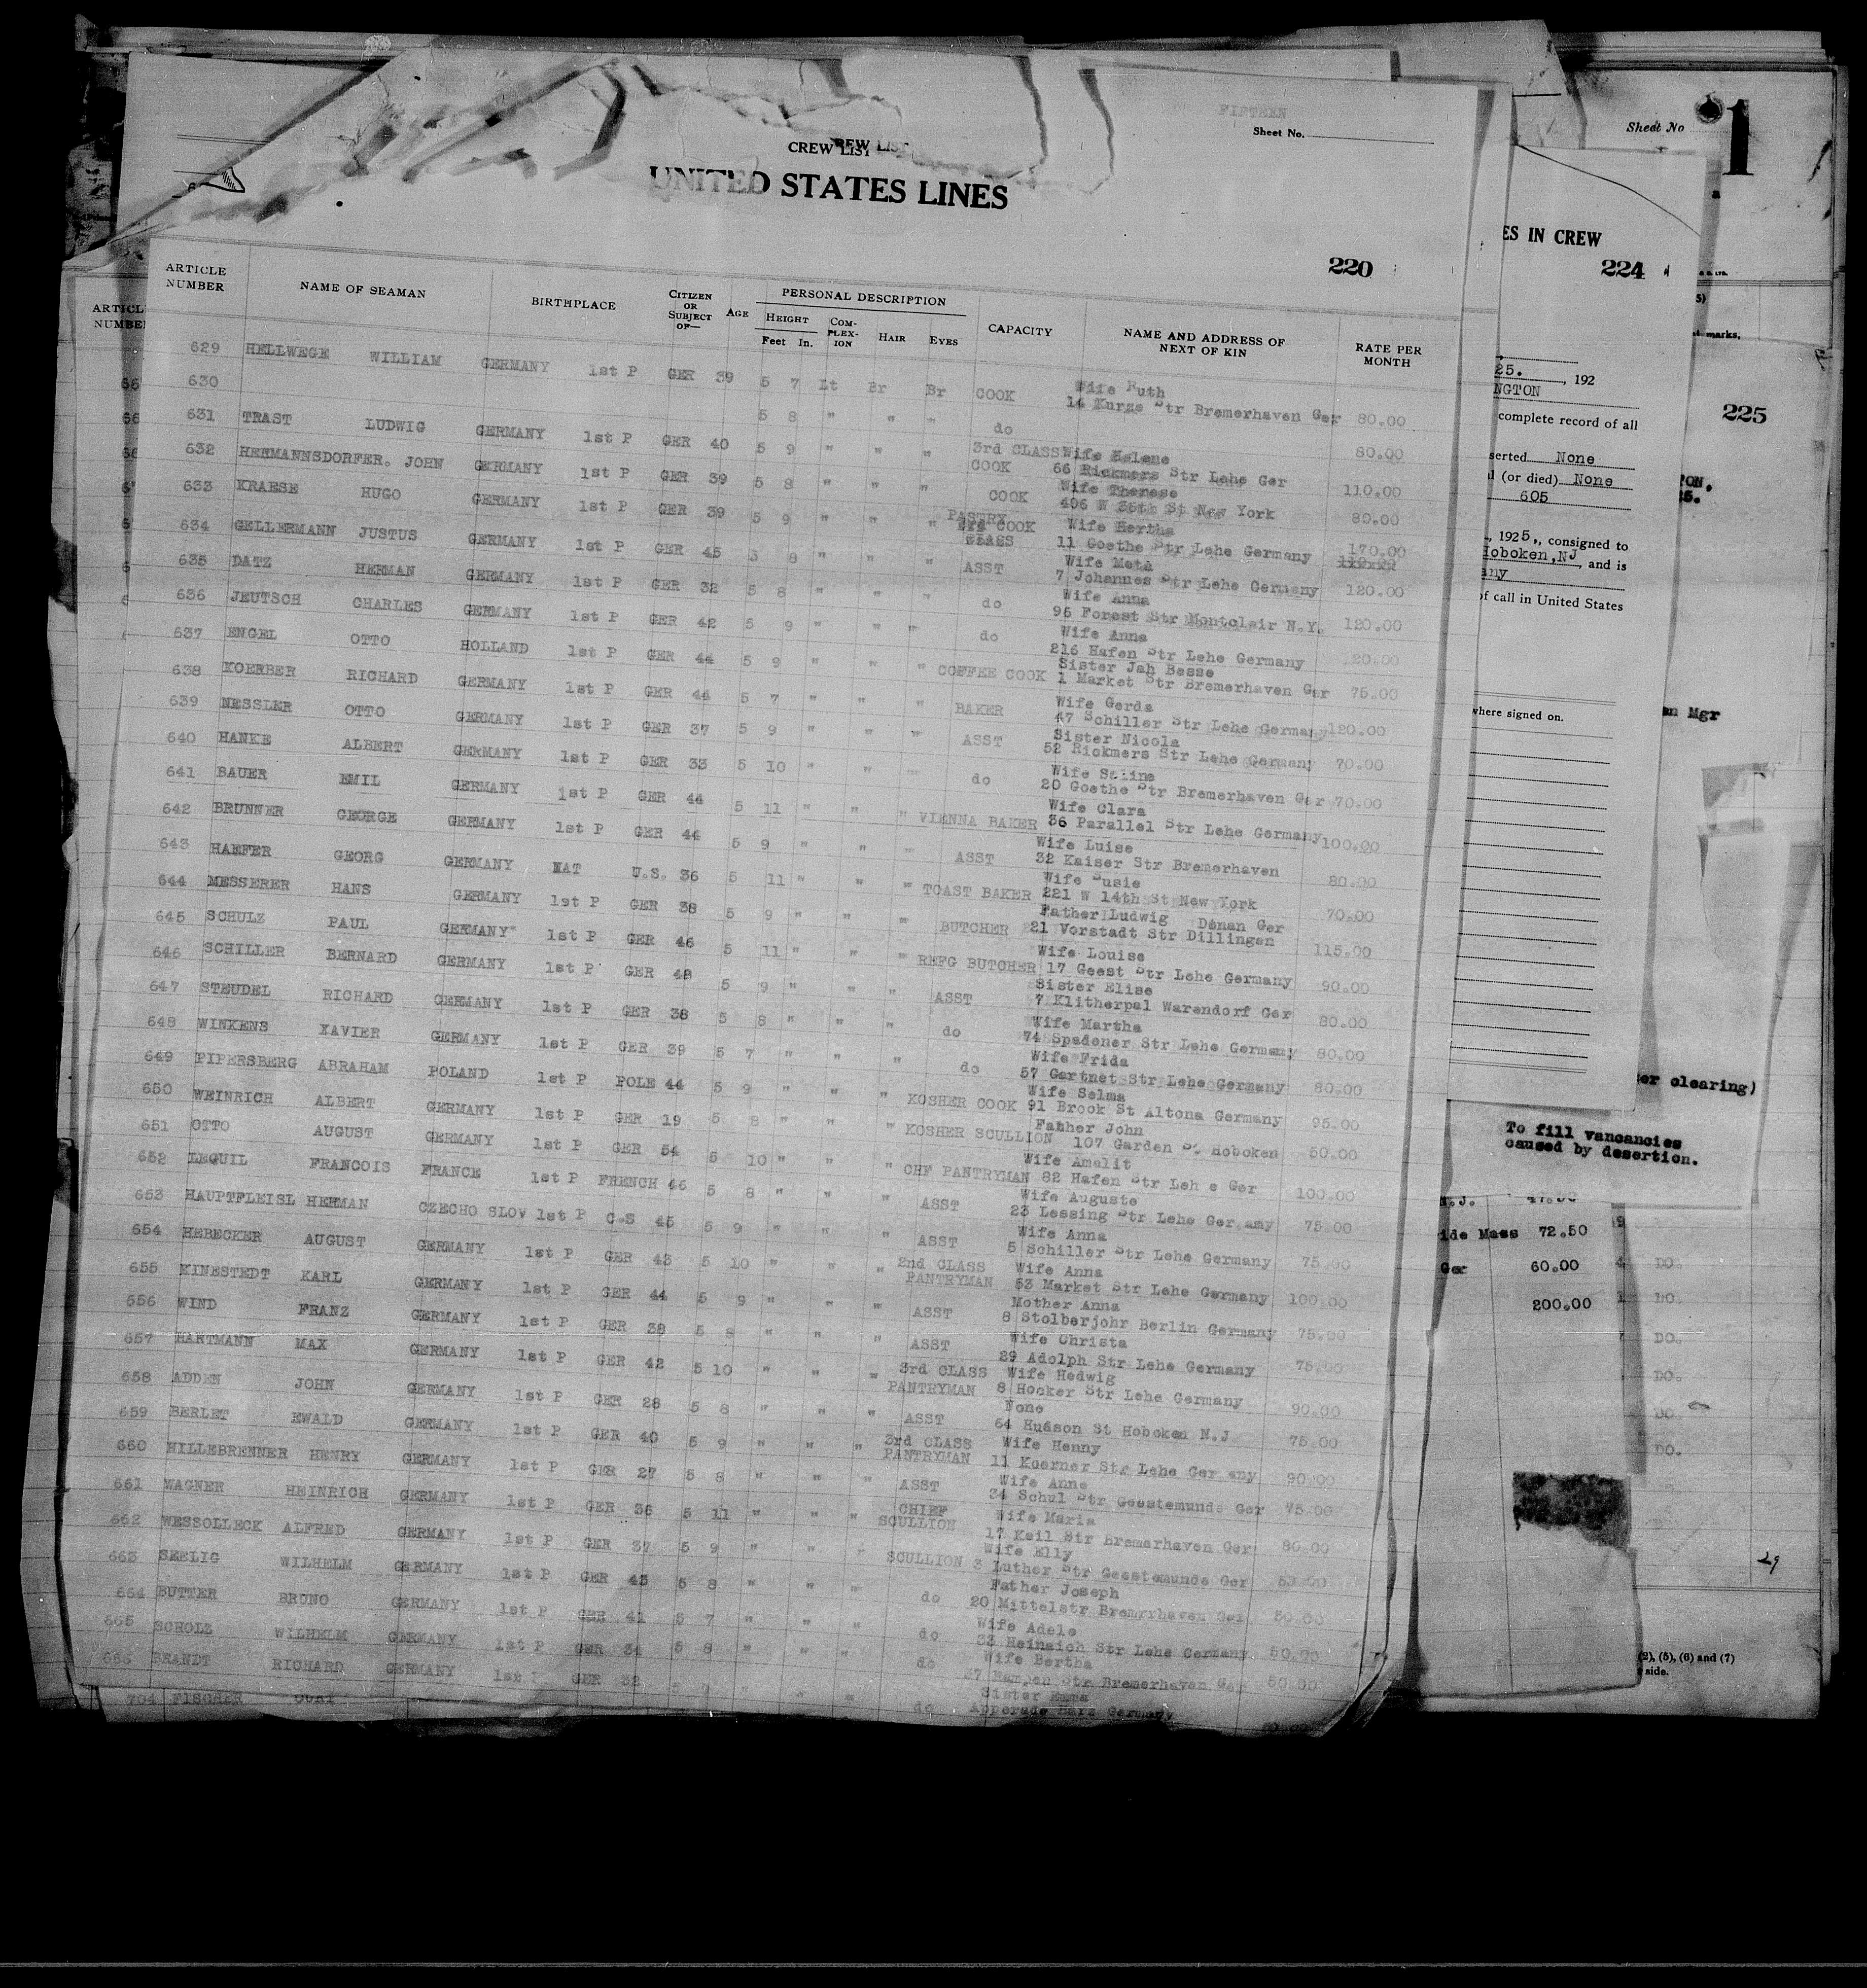 FIFTEEN
Sheet No.
CREW LIST
UNITED STATES LINES
220
ARTICLE NUMBER NAME OF SEAMAN BIRTHPLACE CITIZEN OR SUBJECT OF— AGE PERSONAL DESCRIPTION HEIGHT Feet In. COM-PLEX-ION HAIR EYES CAPACITY NAME AND ADDRESS OF NEXT OF KIN RATE PER MONTH
629 HELLWEGE WILLIAM GERMANY 1st P GER 39 5 7 Lt Br Br COOK Wife Ruth 14 Kurze Str Bremerhaven Ger 80.00
630 5 8 " " " do 80.00
631 TRAST LUDWIG GERMANY 1st P GER 40 5 9 " " " 3rd CLASS COOK Wife Helene 66 Rickmers Str Lehe Ger 110.00
632 HERMANNSDORFER. JOHN GERMANY 1st P GER 39 5 8 " " " COOK Wife Therese 406 W 35th St New York 80.00
633 KRAESE HUGO GERMANY 1st P GER 39 5 9 " " " PASTRY COOK Wife Hertha 11 Goethe Str Lehe Germany 170.00
634 GELLERMANN JUSTUS GERMANY 1st P GER 45 5 8 " " " ASST Wife Meta 7 Johannes Str Lehe Germany 120.00
635 DATZ HERMAN GERMANY 1st P GER 32 5 8 " " " do Wife Anna 95 Forest Str Montclair N.Y. 120.00
636 JEUTSCH CHARLES GERMANY 1st P GER 42 5 9 " " " do Wife Anna 216 Hafen Str Lehe Germany 120.00
637 ENGEL OTTO HOLLAND 1st P GER 44 5 9 " " " COFFEE COOK Sister Jah Besse 1 Market Str Bremerhaven Ger 75.00
638 KOERBER RICHARD GERMANY 1st P GER 44 5 7 " " " BAKER Wife Gerda 47 Schiller Str Lehe Germany 120.00
639 NESSLER OTTO GERMANY 1st P GER 37 5 9 " " " ASST Sister Nicola 52 Rickmers Str Lehe Germany 70.00
640 HANKE ALBERT GERMANY 1st P GER 33 5 10 " " " do Wife 20 Goethe Str Bremerhaven Ger 70.00
641 BAUER EMIL GERMANY 1st P GER 44 5 11 " " " VIENNA BAKER Wife Clara 36 Parallel Str Lehe Germany 100.00
642 BRUNNER GEORGE GERMANY 1st P GER 44 5 9 " " " ASST Wife Luise 32 Kaiser Str Bremerhaven 80.00
643 HAEFER GEORG GERMANY NAT U.S. 36 5 11 " " " TOAST BAKER Wife Susie 221 W 14th St New York 70.00
644 MESSERER HANS GERMANY 1st P GER 38 5 9 " " " BUTCHER Father Ludwig Donan Ger 21 Vorstadt Str Dillingen 115.00
645 SCHULZ PAUL GERMANY 1st P GER 46 5 11 " " " REFG BUTCHER Wife Louise 17 Geest Str Lehe Germany 90.00
646 SCHILLER BERNARD GERMANY 1st P GER 48 5 9 " " " ASST Sister Elise 7 Klitherpal Warendorf Ger 80.00
647 STEUDEL RICHARD GERMANY 1st P GER 38 5 8 " " " do Wife Martha 74 Spadener Str Lehe Germany 80.00
648 WINKENS XAVIER GERMANY 1st P GER 39 5 7 " " " do Wife Frida 57 Gartnet Str Lehe Germany 80.00
649 PIPERSBERG ABRAHAM POLAND 1st P POLE 44 5 9 " " " KOSHER COOK Wife Selma 91 Brook St Altona Germany 95.00
650 WEINRICH ALBERT GERMANY 1st P GER 19 5 8 " " " KOSHER SCULLION Father John 107 Garden St Hoboken 50.00
651 OTTO AUGUST GERMANY 1st P GER 54 5 10 " " " CHF PANTRYMAN Wife Amalit 82 Hafen Str Leh e Ger 100.00
652 LEQUIL FRANCOIS FRANCE 1st P FRENCH 46 5 8 " " " ASST Wife Auguste 23 Lessing Str Lehe Ger.amy 75.00
653 HAUPTFLEISL HERMAN CZECHO SLOV 1st P C-S 45 5 9 " " " ASST Wife Anna 5 Schiller Str Lehe Germany 75.00
654 HEBECKER AUGUST GERMANY 1st P GER 43 5 10 " " " 2nd CLASS PANTRYMAN Wife Anna 53 Market Str Lehe Germany 100.00
655 KINESTEDT KARL GERMANY 1st P GER 44 5 9 " " " ASST Mother Anna 8 Stolberjohr Berlin Germany 75.00
656 WIND FRANZ GERMANY 1st P GER 38 5 8 " " " ASST Wife Christa 29 Adolph Str Lehe Germany 75.00
657 HARTMANN MAX GERMANY 1st P GER 42 5 10 " " " 3rd CLASS PANTRYMAN Wife Hedwig 8 Hocker Str Lehe Germany 90.00
658 ADDEN JOHN GERMANY 1st P GER 28 5 8 " " " ASST None 64 Hudson St Hoboken N.J 75.00
659 BERLET EWALD GERMANY 1st P GER 40 5 9 " " " 3rd CLASS PANTRYMAN Wife Henny 11 Koerner Str Lehe Ger any 90.00
660 HILLEBRENNER HENRY GERMANY 1st P GER 27 5 8 " " " ASST Wife Anne 34 Schul Str Geestemunde Ger 75.00
661 WAGNER HEINRICH GERMANY 1st P GER 36 5 11 " " " CHIEF SCULLION Wife Maria 17 Keil Str Bremerhaven Ger 80.00
662 WESSOLLECK ALFRED GERMANY 1st P GER 37 5 9 " " " SCULLION Wife Elly 3 Luther Str Geestemunde Ger 50.00
663 SEELIG WILHELM GERMANY 1st P GER 43 5 8 " " " do Father Joseph 20 Mittelstr Bremrrhaven Ger 50.00
664 BUTTER BRUNO GERMANY 1st P GER 41 5 7 " " " do Wife Adele 33 Heinaich Str Lehe Germany 50.00
665 SCHOLZ WILHELM GERMANY 1st P GER 34 5 8 " " " do Wife Bertha 27 Rampen Str Bremerhaven Ger 50.00
666 BRANDT RICHARD GERMANY 1st P GER 32 5 9 " " do Sister Emma Germany
704 FISCHER
ARTICL
NUMBE
Sheet No
1
ES IN CREW
224
225
marks.
25. , 192
NGTON
complete record of all
serted None
l (or died) None
605
, 1925., consigned to
Hoboken,NJ , and is
any
of call in United States
where signed on.
en Mgr
ter clearing)
To fill vancancies
caused by desertion.
N.J. 47.50
ide Mass 72.50
Ger 60.00
200.00
DO.
DO.
DO.
DO.
DO.
DO.
29
(2), (5), (6) and (7)
side.